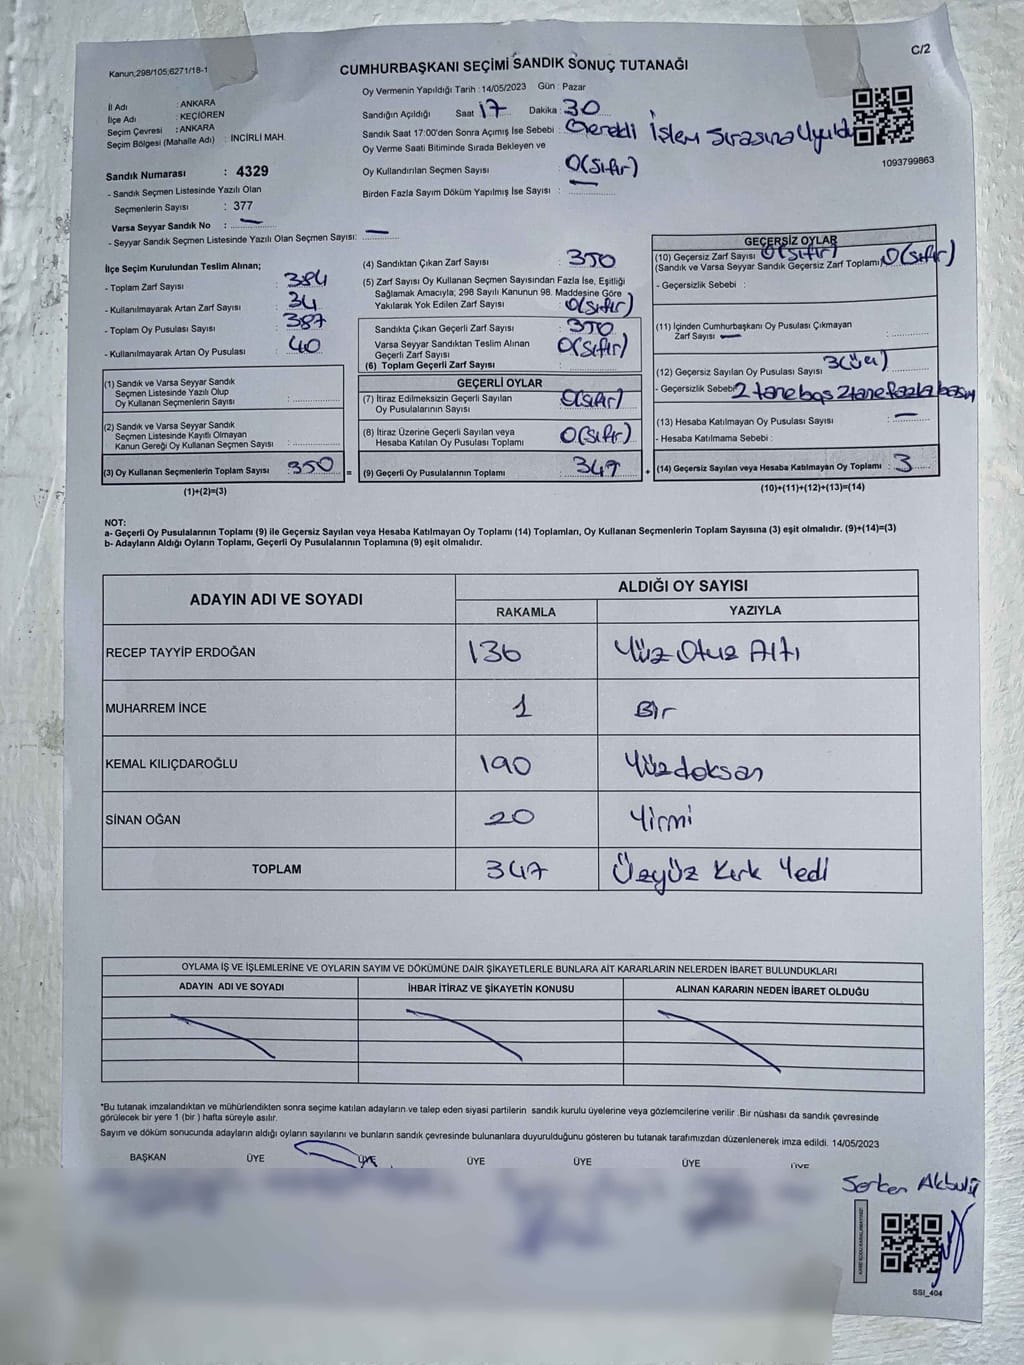 C/2
Kanun,298/105;6271/18-1
CUMHURBAŞKANI SEÇİMİ SANDIK SONUÇ TUTANAĞI
İl Adı : ANKARA
İlçe Adı : KEÇİÖREN
Seçim Çevresi : ANKARA
Seçim Bölgesi (Mahalle Adı) : İNCİRLİ MAH.
Sandık Numarası : 4329
- Sandık Seçmen Listesinde Yazılı Olan
Seçmenlerin Sayısı : 377
Varsa Seyyar Sandık No : —
- Seyyar Sandık Seçmen Listesinde Yazılı Olan Seçmen Sayısı: —
Oy Vermenin Yapıldığı Tarih : 14/05/2023 Gün : Pazar
Sandığın Açıldığı Saat 17 Dakika : 30
Sandık Saat 17:00'den Sonra Açımış İse Sebebi : Gerekli İşlem Sırasına Uyuldu
Oy Verme Saati Bitiminde Sırada Bekleyen ve
Oy Kullandırılan Seçmen Sayısı 0(Sıfır)
Birden Fazla Sayım Döküm Yapılmış İse Sayısı : —
1093799863
İlçe Seçim Kurulundan Teslim Alınan;
- Toplam Zarf Sayısı : 384
- Kullanılmayarak Artan Zarf Sayısı : 34
- Toplam Oy Pusulası Sayısı : 387
- Kullanılmayarak Artan Oy Pusulası : 40
(1) Sandık ve Varsa Seyyar Sandık
Seçmen Listesinde Yazılı Olup
Oy Kullanan Seçmenlerin Sayısı :
(2) Sandık ve Varsa Seyyar Sandık
Seçmen Listesinde Kayıtlı Olmayan
Kanun Gereği Oy Kullanan Seçmen Sayısı :
(3) Oy Kullanan Seçmenlerin Toplam Sayısı : 350 =
(1)+(2)=(3)
(4) Sandıktan Çıkan Zarf Sayısı : 350
(5) Zarf Sayısı Oy Kullanan Seçmen Sayısından Fazla İse, Eşitliği
Sağlamak Amacıyla, 298 Sayılı Kanunun 98. Maddesine Göre
Yakılarak Yok Edilen Zarf Sayısı : 0(Sıfır)
Sandıkta Çıkan Geçerli Zarf Sayısı : 350
Varsa Seyyar Sandıktan Teslim Alınan
Geçerli Zarf Sayısı : 0(Sıfır)
(6) Toplam Geçerli Zarf Sayısı :
GEÇERLİ OYLAR
(7) İtiraz Edilmeksizin Geçerli Sayılan
Oy Pusulalarının Sayısı : 0(Sıfır)
(8) İtiraz Üzerine Geçerli Sayılan veya
Hesaba Katılan Oy Pusulası Toplamı : 0(Sıfır)
(9) Geçerli Oy Pusulalarının Toplamı : 347 +
GEÇERSİZ OYLAR
(10) Geçersiz Zarf Sayısı 0(Sıfır)
(Sandık ve Varsa Seyyar Sandık Geçersiz Zarf Toplamı) 0(Sıfır)
- Geçersizlik Sebebi :
(11) İçinden Cumhurbaşkanı Oy Pusulası Çıkmayan
Zarf Sayısı —
(12) Geçersiz Sayılan Oy Pusulası Sayısı 3(üç)
- Geçersizlik Sebebi 2 tane boş 2 tane fazla basım
(13) Hesaba Katılmayan Oy Pusulası Sayısı : —
- Hesaba Katılmama Sebebi :
(14) Geçersiz Sayılan veya Hesaba Katılmayan Oy Toplamı : 3
(10)+(11)+(12)+(13)=(14)
NOT:
a- Geçerli Oy Pusulalarının Toplamı (9) ile Geçersiz Sayılan veya Hesaba Katılmayan Oy Toplamı (14) Toplamları, Oy Kullanan Seçmenlerin Toplam Sayısına (3) eşit olmalıdır. (9)+(14)=(3)
b- Adayların Aldığı Oyların Toplamı, Geçerli Oy Pusulalarının Toplamına (9) eşit olmalıdır.
ADAYIN ADI VE SOYADI ALDIĞI OY SAYISI
RAKAMLA YAZIYLA
RECEP TAYYİP ERDOĞAN 136 Yüz Otuz Altı
MUHARREM İNCE 1 Bir
KEMAL KILIÇDAROĞLU 190 Yüzdoksan
SİNAN OĞAN 20 Yirmi
TOPLAM 347 Üzyüz Kırk Yedi
OYLAMA İŞ VE İŞLEMLERİNE VE OYLARIN SAYIM VE DÖKÜMÜNE DAİR ŞİKAYETLERLE BUNLARA AİT KARARLARIN NELERDEN İBARET BULUNDUKLARI
ADAYIN ADI VE SOYADI İHBAR İTİRAZ VE ŞİKAYETİN KONUSU ALINAN KARARIN NEDEN İBARET OLDUĞU
*Bu tutanak imzalandıktan ve mühürlendikten sonra seçime katılan adayların ve talep eden siyasi partilerin sandık kurulu üyelerine veya gözlemcilerine verilir .Bir nüshası da sandık çevresinde
görülecek bir yere 1 (bir ) hafta süreyle asılır.
Sayım ve döküm sonucunda adayların aldığı oyların sayılarını ve bunların sandık çevresinde bulunanlara duyurulduğunu gösteren bu tutanak tarafımızdan düzenlenerek imza edildi. 14/05/2023
BAŞKAN ÜYE ÜYE ÜYE ÜYE ÜYE ÜYE
Serkan Akbulut
SSI_404